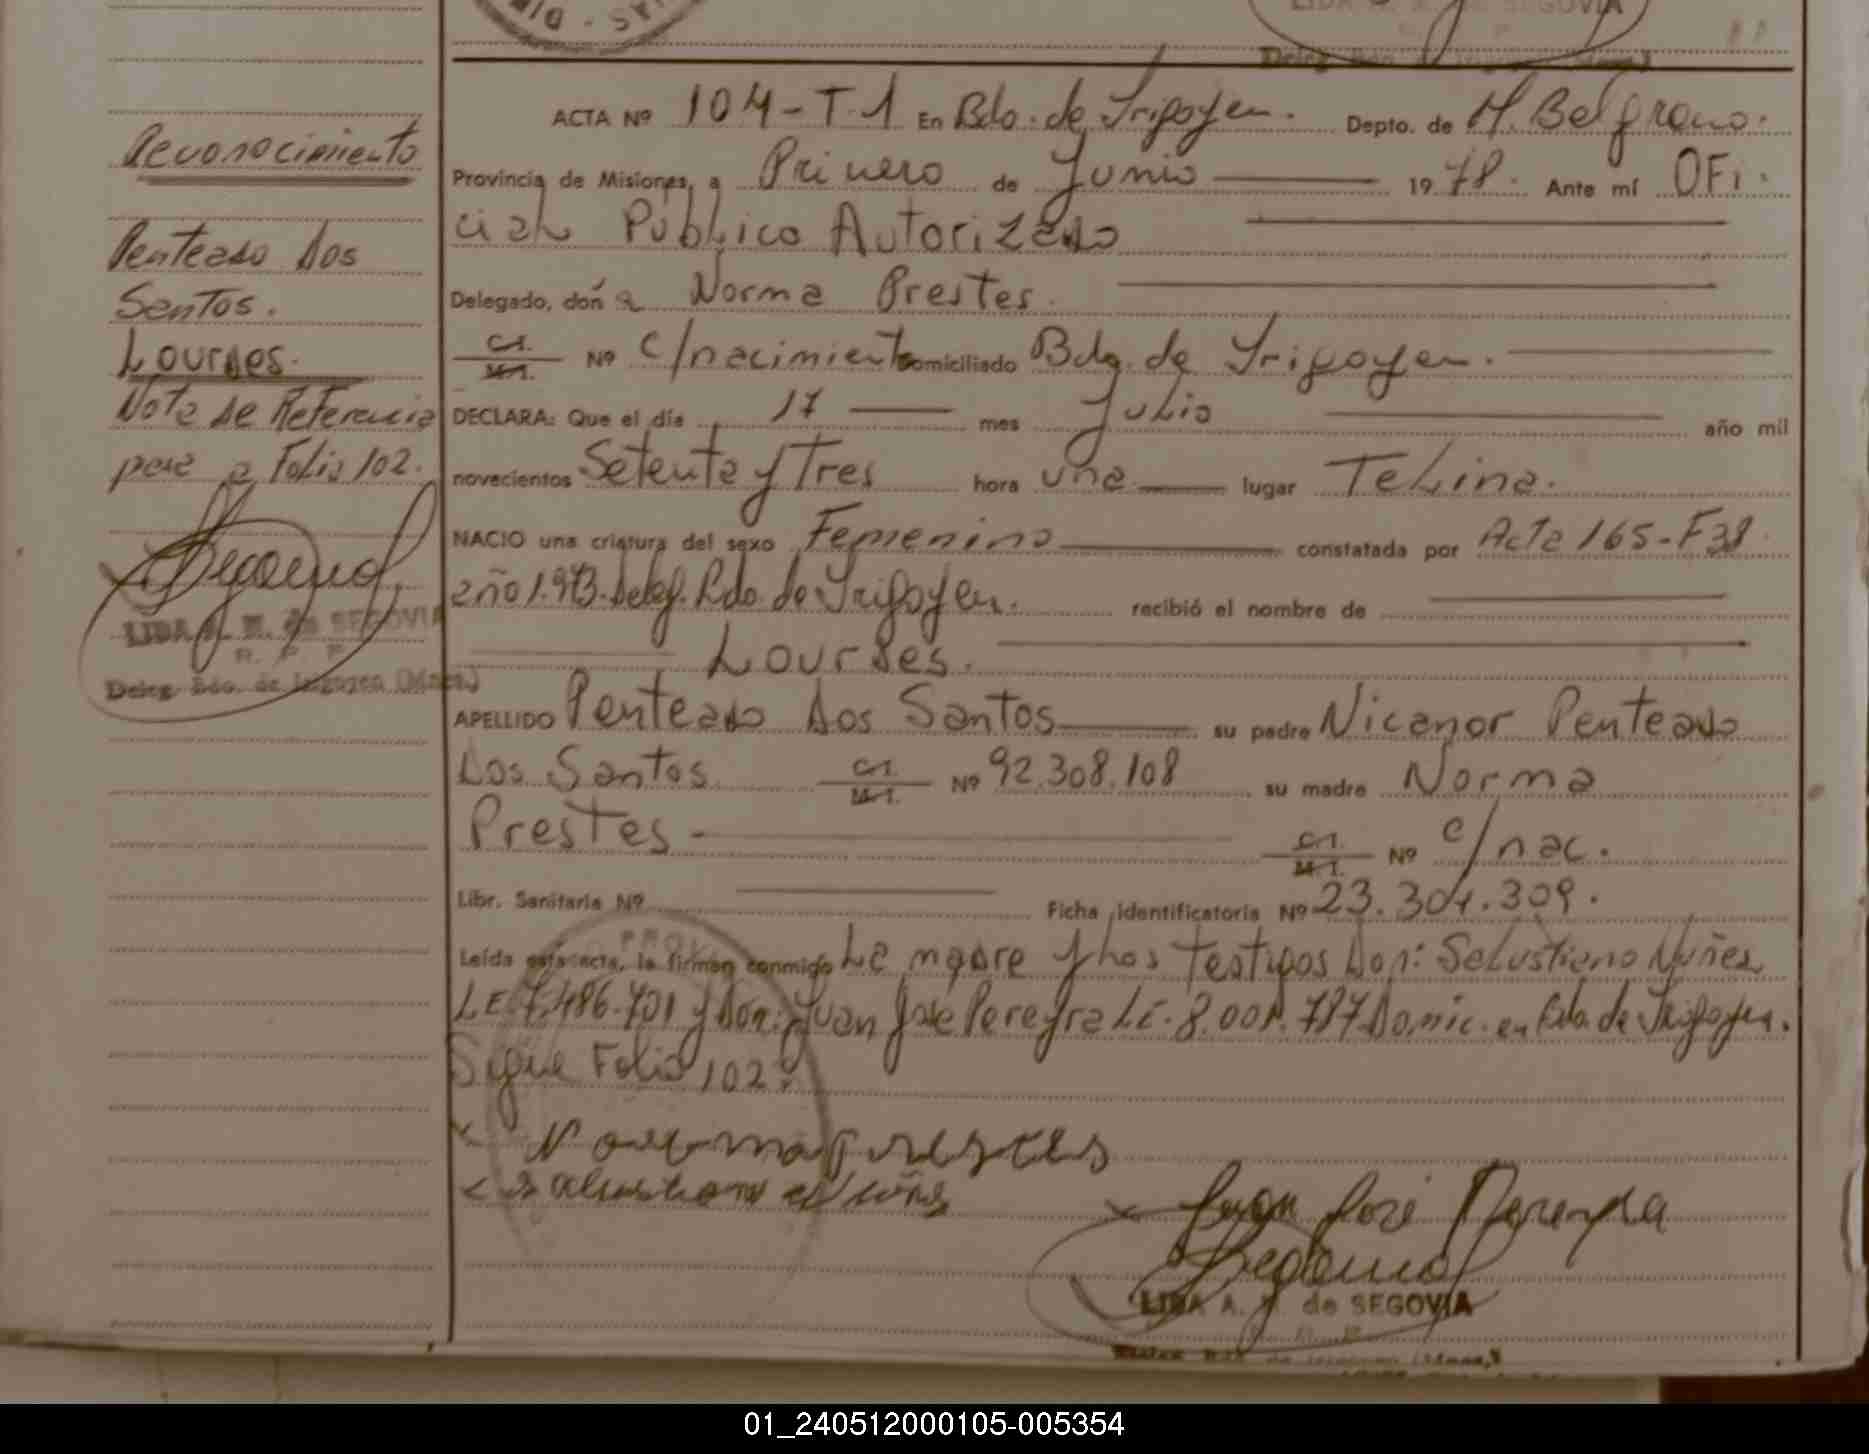 DIR
LIDA A. M. de SEGOVIA
ACTA Nº 104-T.1 En Bdo. de Irigoyen. Depto. de M. Belgrano.
Provincia de Misiones, a Primero de Junio 1978. Ante mí OFi.
cial Público Autorizado
Delegado, doña Norma Prestes.
C.I. M.I. Nº c/nacimiento domiciliado Bdo. de Irigoyen.
DECLARA: Que el día 17 mes Julio año mil
novecientos Setenta y Tres hora una lugar TeLina.
NACIO una criatura del sexo Femenino constatada por Acta 165-F38
año 1.973. Deleg. Bdo. de Irigoyen. recibió el nombre de
Lourdes.
APELLIDO Penteado Dos Santos su padre Nicanor Penteado
Dos Santos C.I. M.I. Nº 92.308.108 su madre Norma
Prestes C.I. M.I. Nº c/nac.
Libr. Sanitaria Nº Ficha identificatoria Nº 23.304.309.
Leída esta acta, la firman conmigo La madre y Los Testigos Don: Salustiano Nuñez
LE.7.486.701 y Don: Juan Jose Pereyra LE-8.001.787 Domic. en Bdo. de Irigoyen.
Sigue Folio 102.
Norma prestes
Juan José Pereyra
LIDA A. M. de SEGOVIA
Reconocimiento
Penteado Dos
Santos.
Lourdes.
Nota de Referencia
pasa a Folio 102.
LIDA A. M. de SEGOVIA
R. P. P.
Deleg. Bdo. de Irigoyen (Mnes.)
01_240512000105-005354